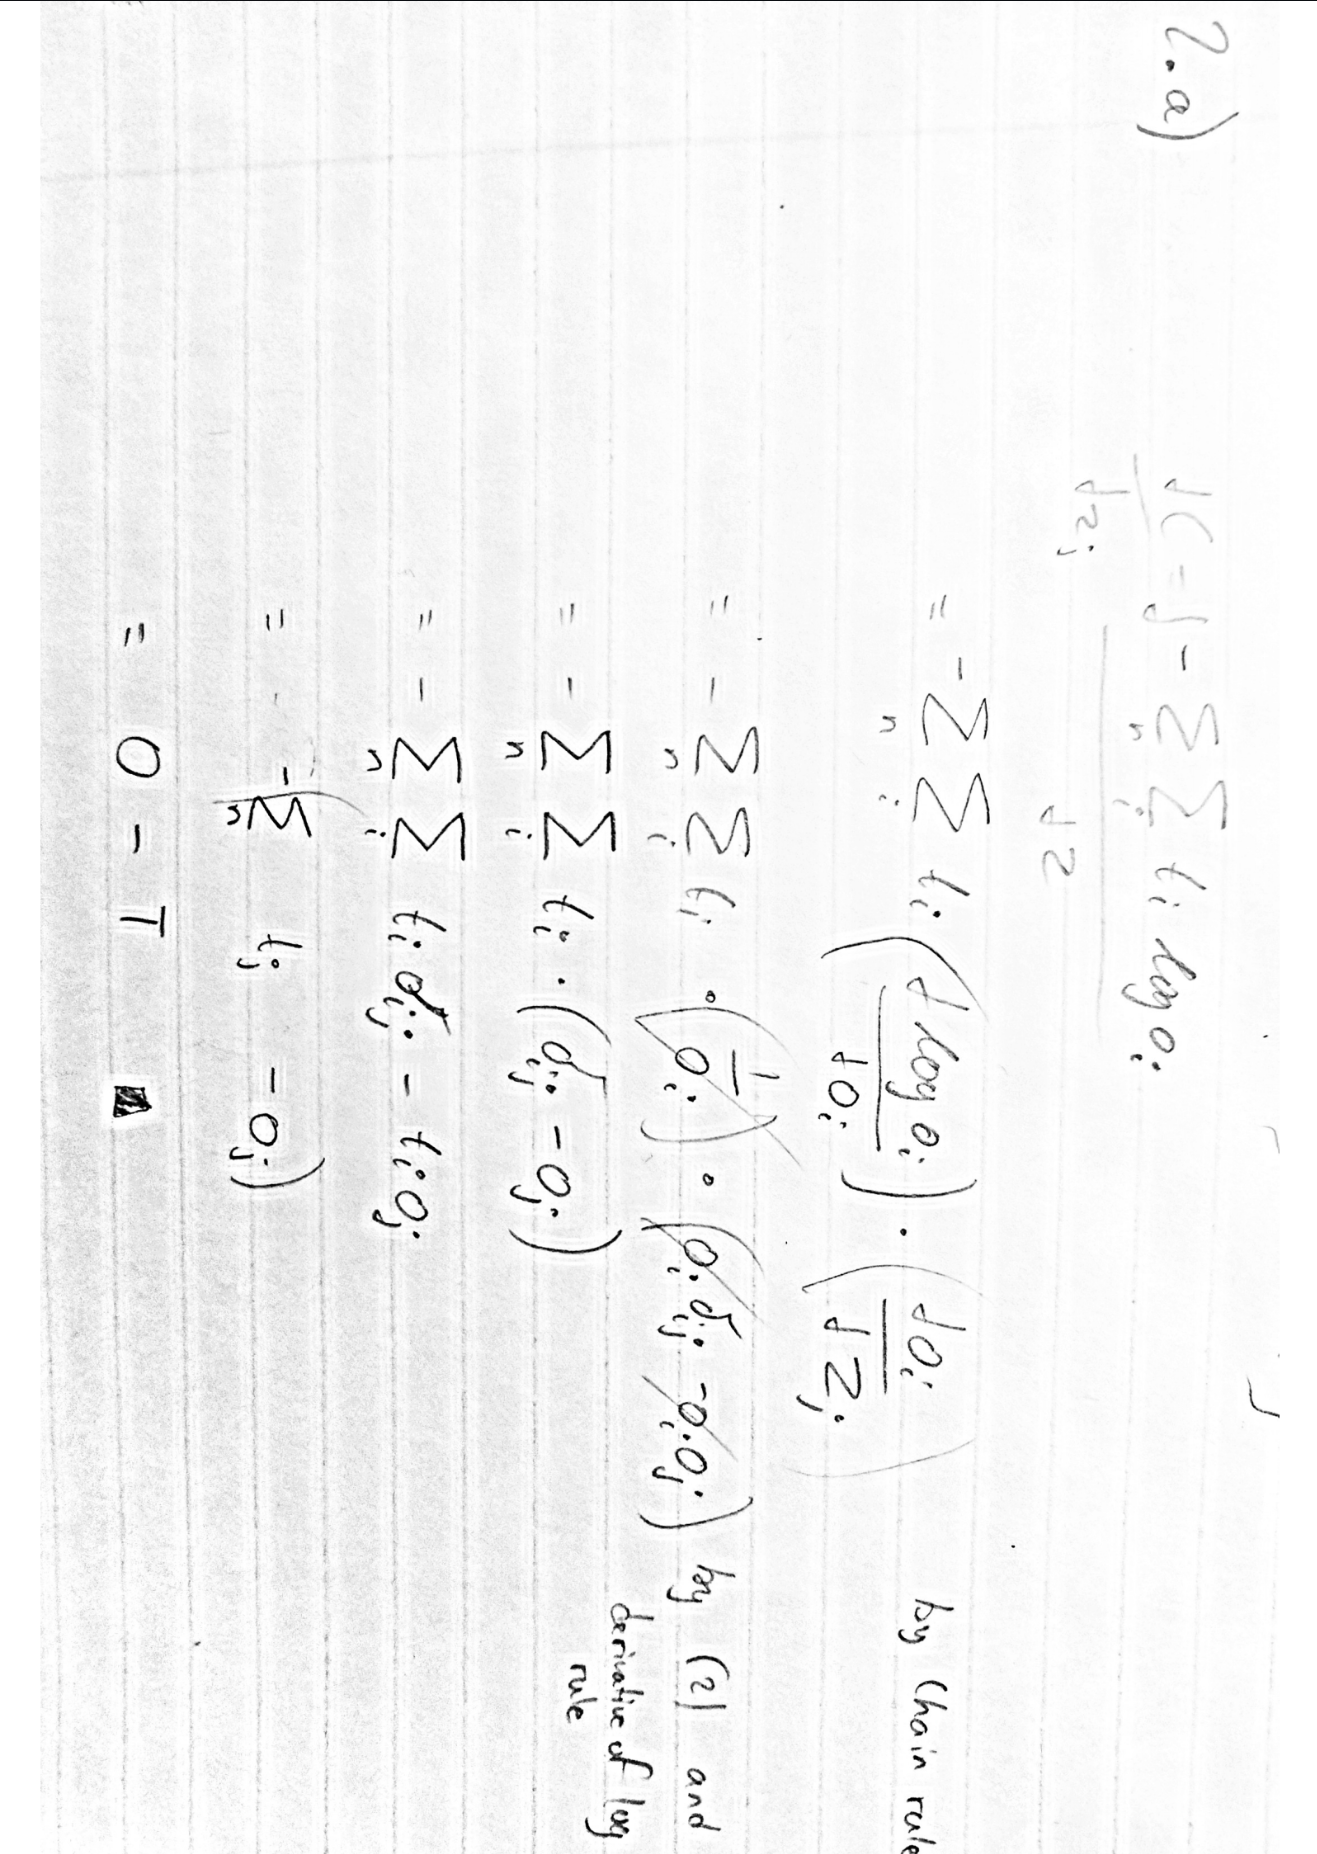 2.a)
dC/dz_j = d - Σ_n Σ_i t_i log o_i / dz
= - Σ_n Σ_i t_i (d log o_i / d o_i) · (d o_i / d z_j) by Chain rule
= - Σ_n Σ_i t_i · (1/o_i) · (o_i δ_ij - o_i o_j) by (2) and
derivative of log
rule
= - Σ_n Σ_i t_i · (δ_ij - o_j)
= - Σ_n Σ_i t_i δ_ij - t_i o_j
= - Σ_n t_j - o_j)
= O - T ■